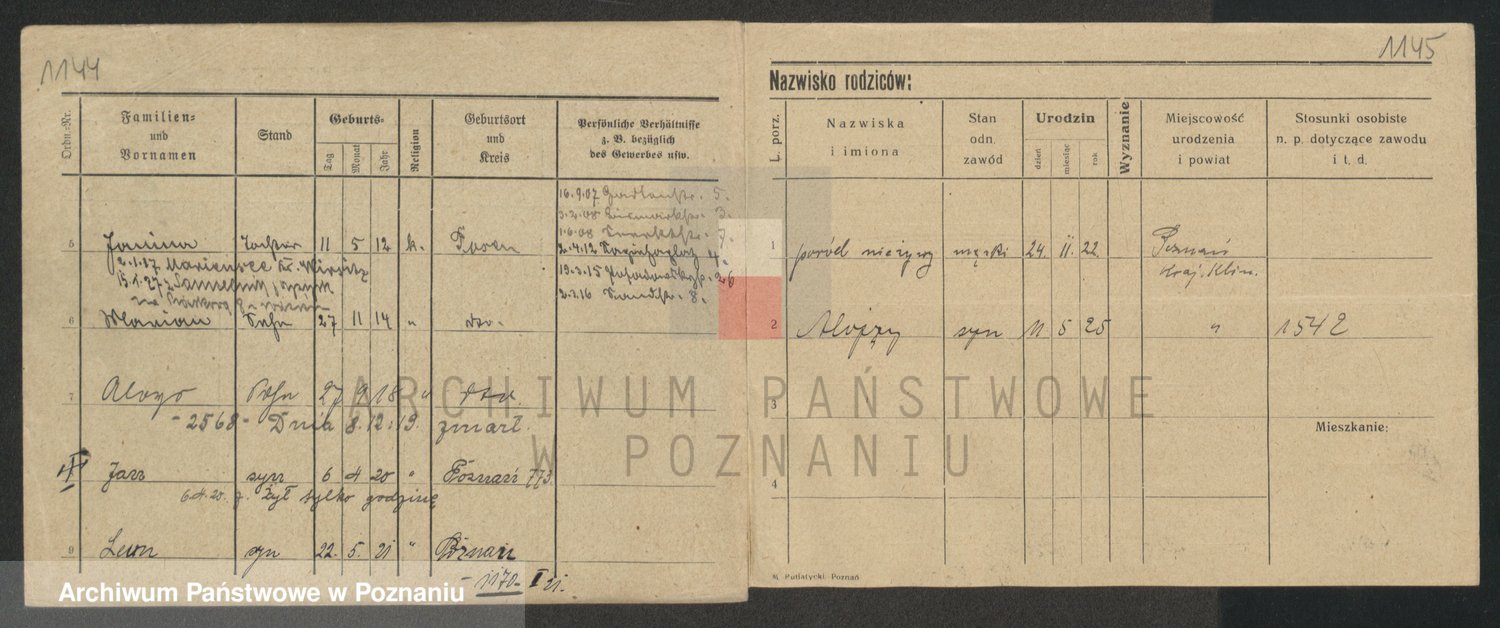 1144
Ordn.-Nr.
Familien- und Vornamen
Stand
Geburts-
Tag
Monat
Jahr
Religion
Geburtsort und Kreis
Persönliche Verhältnisse z. B. bezüglich des Gewerbes usw.
16.9.07 5.
3.2.08 Bismarckstr. 3.
1.6.08 7.
2.4.12 4.
19.3.15 26
2.3.16 8.
5 Janina Tochter 11 5 12 k. Posen
2.1.17 Mariensee Kr. Wirsitz
15.1.27
6 Marian Sohn 27 11 14 " dto.
7 Aloys Sohn 27 9 18 " dto.
- 2568 - Dnia 8.12.19. zmarł.
Jan syn 6 4 20 " Poznań 773.
6.4.20. żył tylko godzinę
9 Leon syn 22. 5. 21 " Poznań
- 1170 - I 21.
1145
Nazwisko rodziców:
L. porz.
Nazwiska i imiona
Stan odn. zawód
Urodzin
dzień
miesiąc
rok
Wyznanie
Miejscowość urodzenia i powiat
Stosunki osobiste n. p. dotyczące zawodu i t. d.
1 poród nieżywy męski 24. II. 22. Poznań
Kraj. Klin.
2 Alojzy syn 11 5 25 " 1542
3
Mieszkanie:
4
M. Putiatycki Poznań
ARCHIWUM PAŃSTWOWE
W POZNANIU
Archiwum Państwowe w Poznaniu